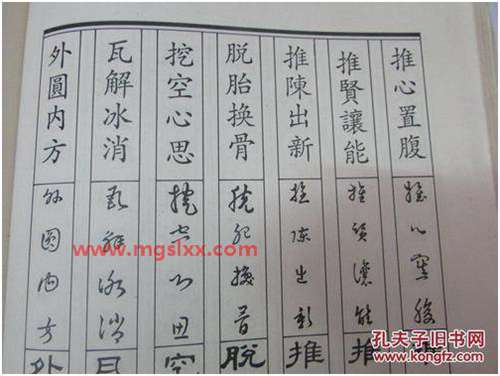 推心置腹
推賢讓能
推陳出新
脱胎换骨
挖空心思
瓦解冰消
外圓内方
推心置腹
推賢讓能
推陳出新
脱胎换骨
挖空心思
瓦解冰消
外圓内方
推
推
脱
外
www.mgslxx.com
孔夫子旧书网
www.kongfz.com